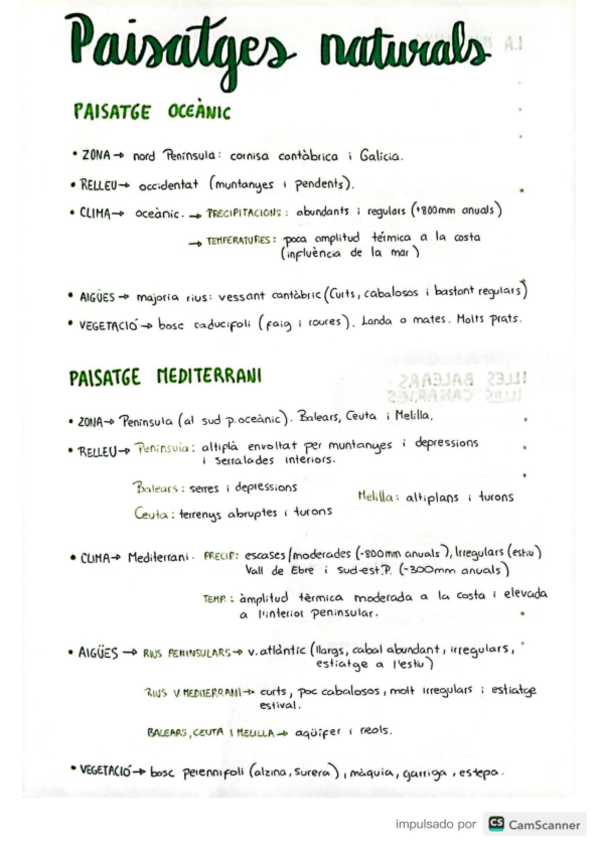 Paisatges naturals
PAISATGE OCEÀNIC
• ZONA → nord Península: cornisa cantàbrica i Galícia.
• RELLEU → occidentat (muntanyes i pendents).
• CLIMA → oceànic. → PRECIPITACIONS: abundants i regulars (+800mm anuals)
→ TEMPERATURES: poca amplitud térmica a la costa
(influència de la mar)
• AIGÜES → majoria rius: vessant cantàbric (Curts, cabalosos i bastant regulars)
• VEGETACIÓ → bosc caducifoli (faig i roures). Landa o mates. Molts prats.
PAISATGE MEDITERRANI
• ZONA → Península (al sud p.oceànic). Balears, Ceuta i Melilla.
• RELLEU → Península: altiplà envoltat per muntanyes i depressions
i serralades interiors.
Balears: serres i depressions
Melilla: altiplans i turons
Ceuta: terrenys abruptes i turons
• CLIMA → Mediterrani. PRECIP: escases/moderades (-800mm anuals), Irregulars (estiu)
Vall de Ebre i sud-est.P. (-300mm anuals)
TEMP.: àmplitud tèrmica moderada a la costa i elevada
a l'interior peninsular.
• AIGÜES → RIUS PENINSULARS → v.atlàntic (llargs, cabal abundant, irregulars,
estiatge a l'estiu)
RIUS V.MEDITERRANI → curts, poc cabalosos, molt irregulars i estiatge
estival.
BALEARS, CEUTA I MELILLA → aqüífer i reols.
• VEGETACIÓ → bosc perennifoli (alzina, surera), màquia, garriga, estepa.
impulsado por CS CamScanner